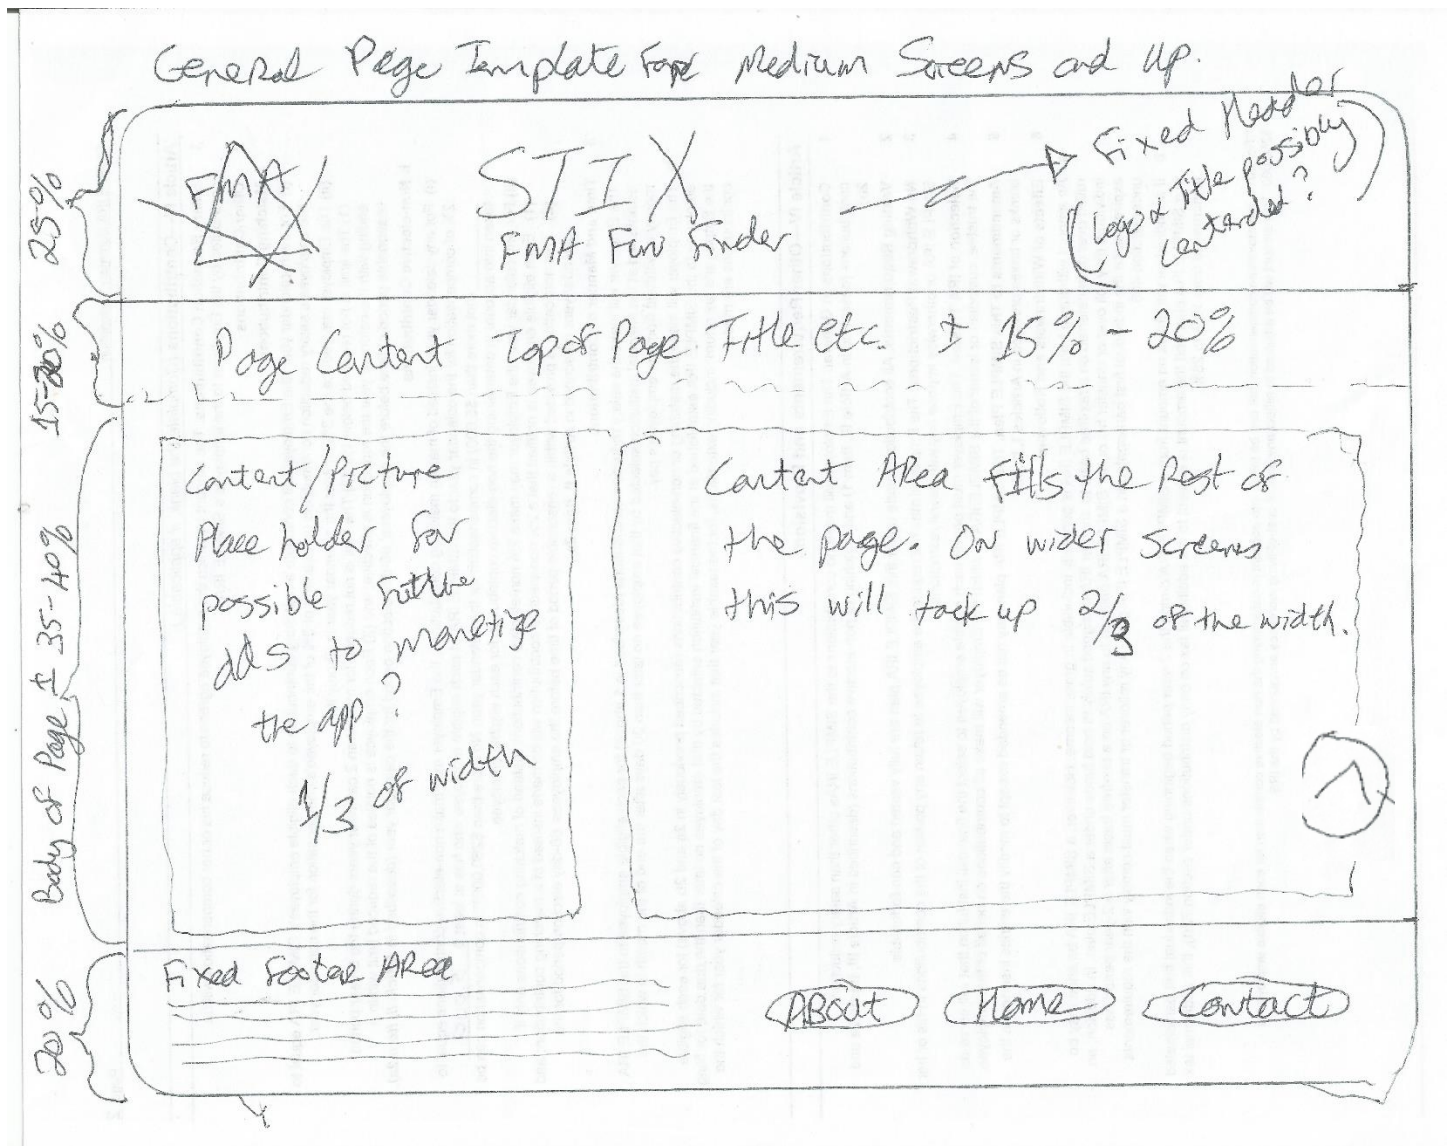 General Page Template For Medium Screens and Up.
25%
FMA
STIX
FMA Fun Finder
Fixed Header
(Logo & Title possibly
centerded?)
15-20%
Page Content Top of Page Title etc. ± 15% - 20%
Body of Page ± 35-40%
Content/Picture
Place holder for
possible future
adds to monetize
the app?
1/3 of width
Content Area fills the Rest of
the page. On wider screens
this will tack up 2/3 of the width.
20%
Fixed Footer Area
About
Home
Contact